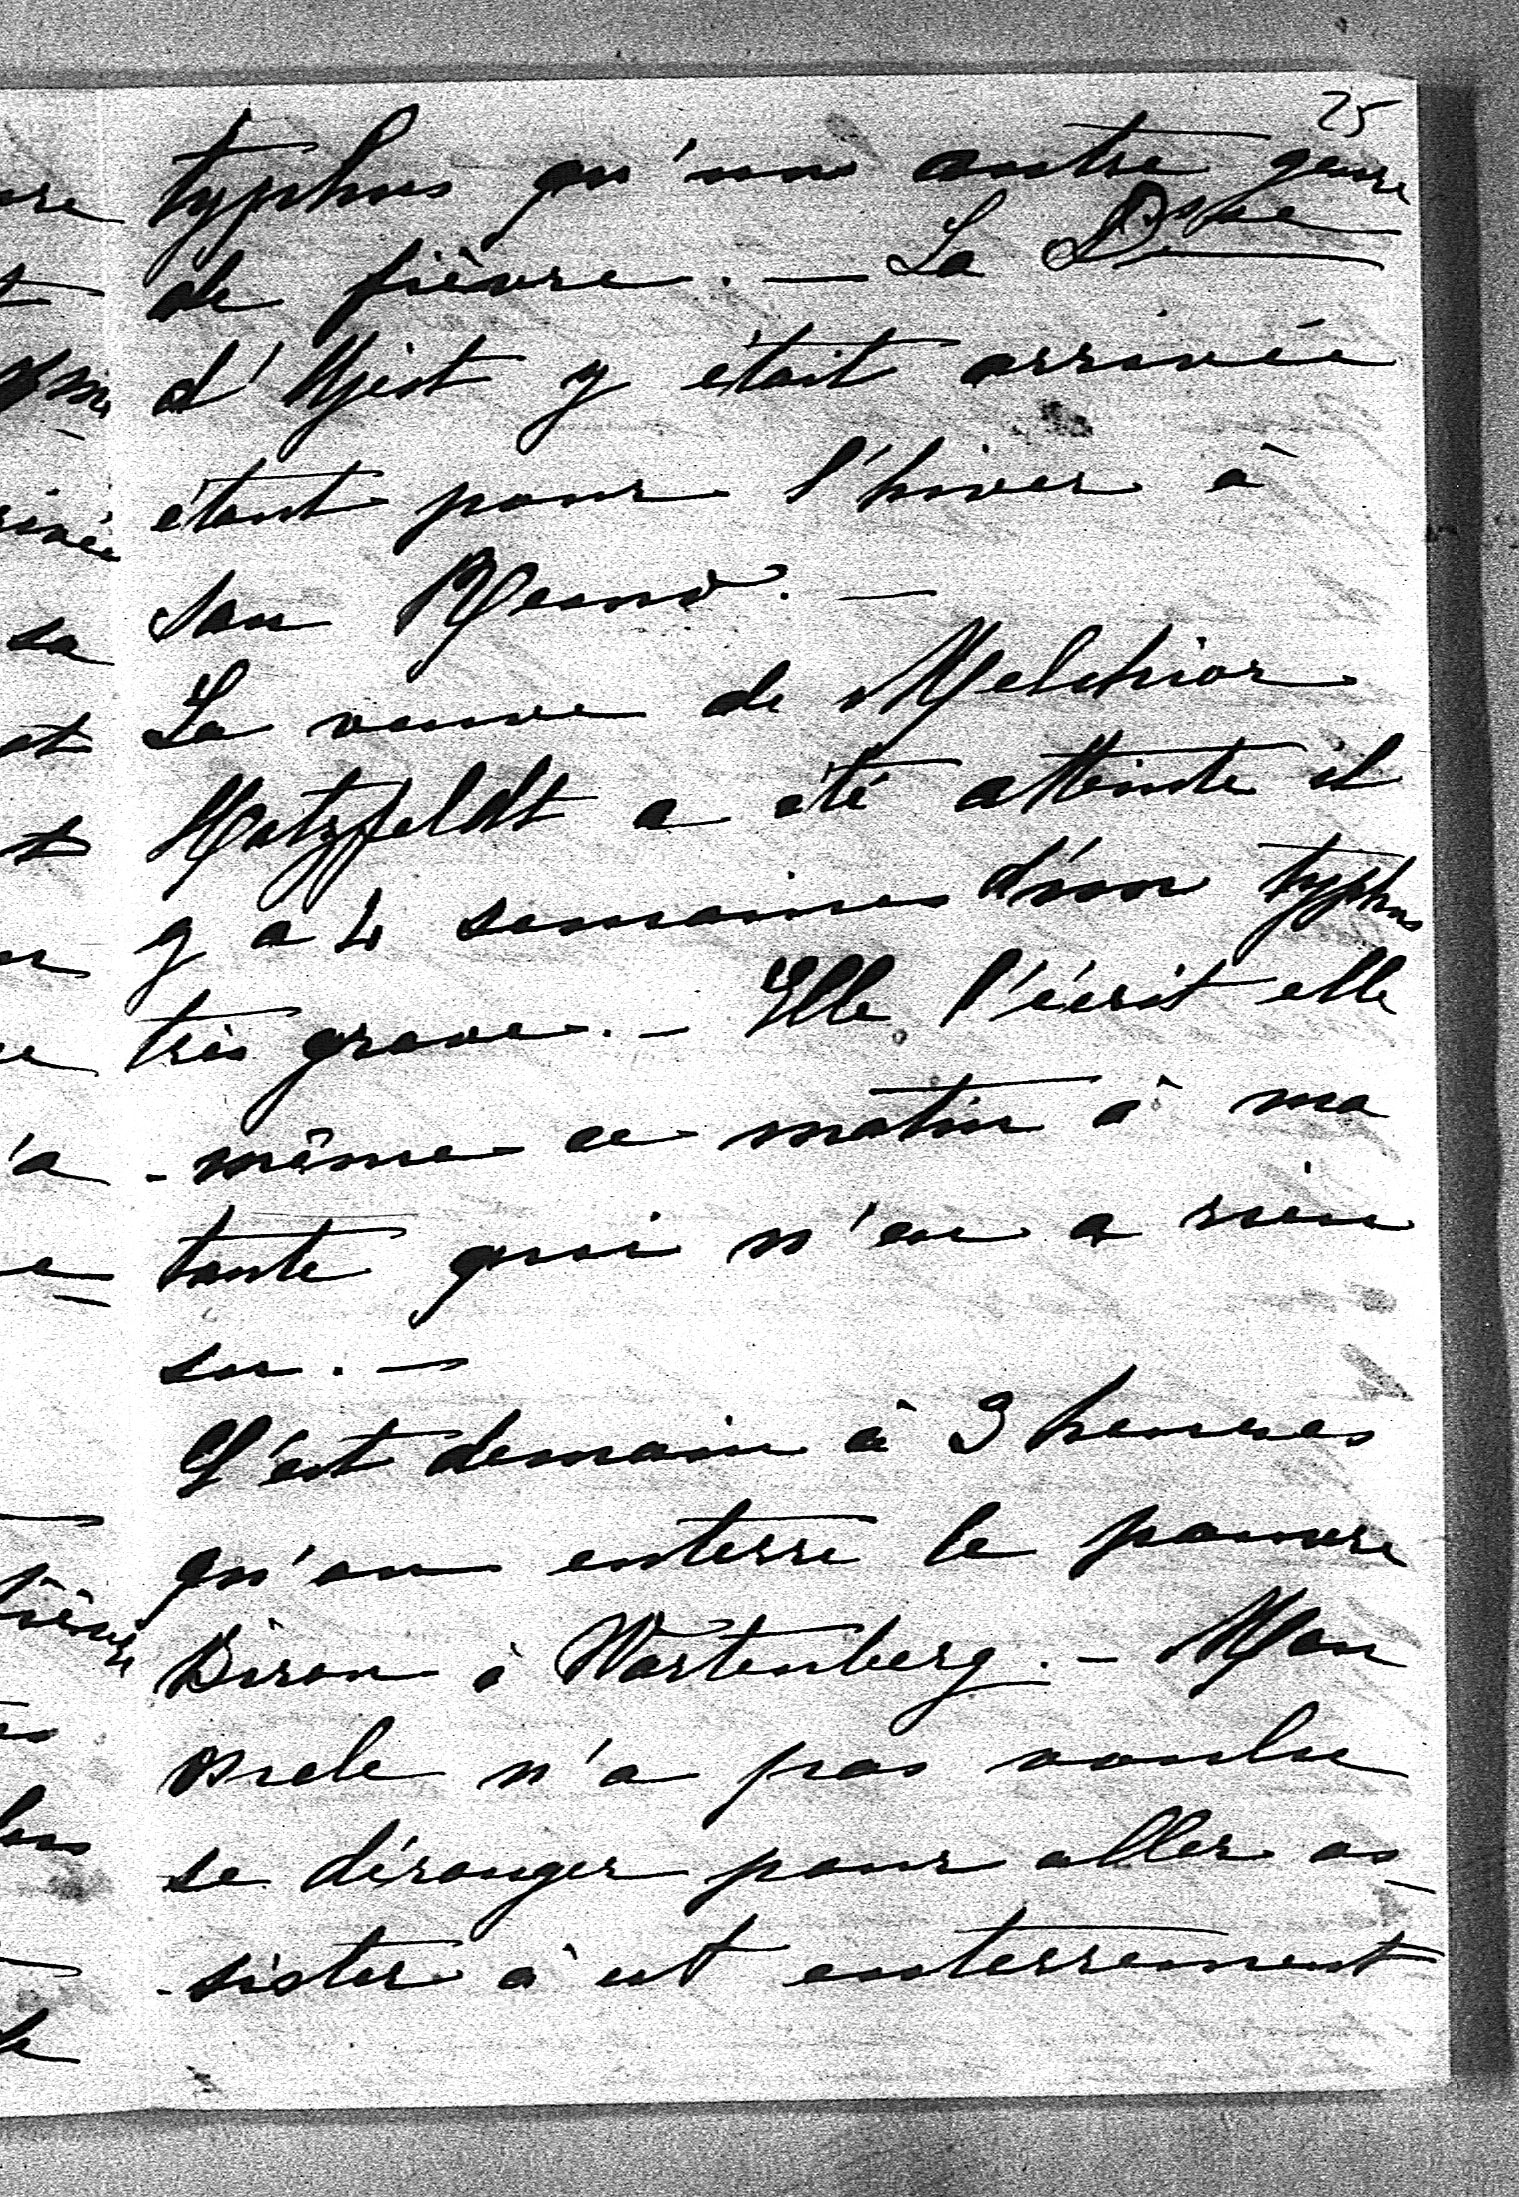 25
typhus qu'une autre genre
de fièvre. — La Dsse
d'Ujest y était arrivée
étant pour l'hiver à
San Remo. —
La veuve de Melchior
Hatzfeldt a été atteinte il
y a 4 semaines d'un typhus
très grave. — Elle l'écrit elle
- même ce matin à ma
tante qui n'en a rien
su. —
C'est demain à 3 heures
qu'on enterre le pauvre
Biron à Wartenberg. — Mon
oncle n'a pas voulu
se déranger pour aller as-
-sister à cet enterrement